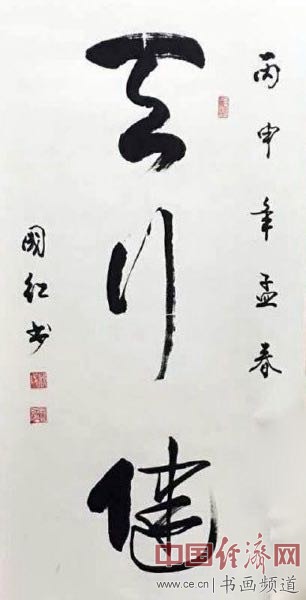 丙申年孟春
天行健
國紅书
中国经济网
www.ce.cn 书画频道